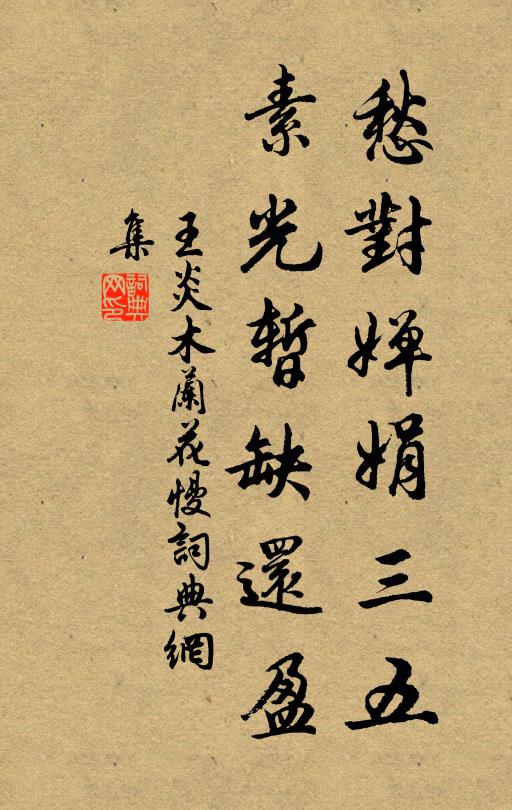 愁對嬋娟三五
素光暫缺還盈
王炎木蘭花慢詞典網
集
詞典
网印